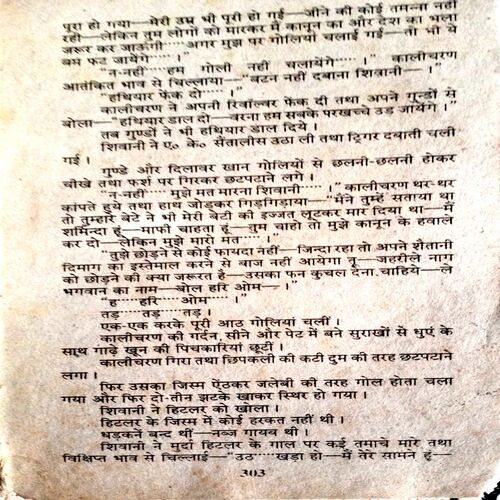 पूरा हो गया—मेरी उम्र भी पूरी हो गई—जीने की कोई तमन्ना नहीं
रही—लेकिन तुम लोगों को मारकर मैं कानून का और देश का भला
जरूर कर जाऊंगी·····अगर मुझ पर गोलियां चलाई गईं—तो भी ये
बम फट जायेंगे·····।"
"न-नहीं····हम गोली नहीं चलायेंगे·····।" कालीचरण
आतंकित भाव से चिल्लाया—"बटन नहीं दबाना शिवानी—।"
"हथियार फेंक दो·····।"
कालीचरण ने अपनी रिवॉल्वर फेंक दी तथा अपने गुन्डों से
बोला—"हथियार डाल दो—वरना हम सबके परखच्चे उड़ जायेंगे।"
तब गुण्डों ने भी हथियार डाल दिये।
शिवानी ने ए० के० सैंतालीस उठा ली तथा ट्रिगर दबाती चली
गई।
गुण्डे और दिलावर खान गोलियों से छलनी-छलनी होकर
चीखे तथा फर्श पर गिरकर छटपटाने लगे।
"न-नहीं····मुझे मत मारना शिवानी·····।" कालीचरण थर-थर
कांपते हुये तथा हाथ जोड़कर गिड़गिड़ाया—"मैंने तुम्हें सताया था
तो तुम्हारे बेटे ने भी मेरी बेटी की इज्जत लूटकर मार दिया था—मैं
शर्मिन्दा हूं—माफी चाहता हूं—तुम चाहो तो मुझे कानून के हवाले
कर दो—लेकिन मुझे मारो मत·····।"
"तुझे छोड़ने से कोई फायदा नहीं—जिन्दा रहा तो अपने शैतानी
दिमाग का इस्तेमाल करने से बाज नहीं आयेगा तू—जहरीले नाग
को छोड़ने की क्या जरूरत है—उसका फन कुचल देना चाहिये—ले
भगवान का नाम—बोल हरि ओम—।"
"ह····हरि····ओम·····।"
तड़····तड़····तड़।
एक-एक करके पूरी आठ गोलियां चलीं।
कालीचरण की गर्दन, सीने और पेट में बने सुराखों से धुएं के
साथ गाढ़े खून की पिचकारियां छूटीं।
कालीचरण गिरा तथा छिपकली की कटी दुम की तरह छटपटाने
लगा।
फिर उसका जिस्म ऐंठकर जलेबी की तरह गोल होता चला
गया और फिर दो-तीन झटके खाकर स्थिर हो गया।
शिवानी ने हिटलर को खोला।
हिटलर के जिस्म में कोई हरकत नहीं थी।
धड़कनें बन्द थीं—नब्ज गायब थी।
शिवानी ने मुर्दा हिटलर के गाल पर कई तमाचे मारे तथा
विक्षिप्त भाव से चिल्लाई—"उठ····खड़ा हो—मैं तेरे सामने हूं—
303